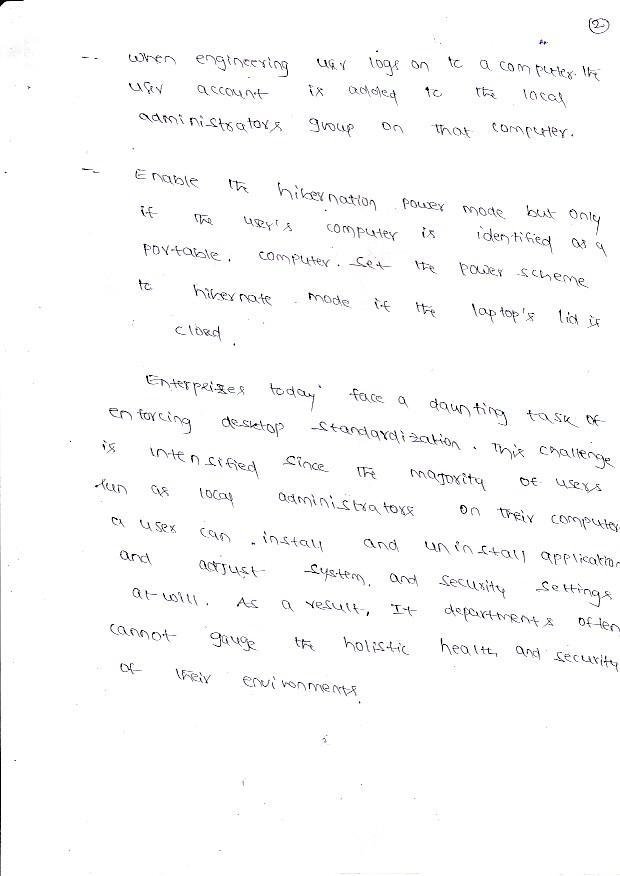 2
-- When engineering user logs on to a computer. the
user account is added to the local
administrators group on that computer.
-- Enable the hibernation power mode but only
if the user's computer is identified as a
portable. computer. Set the power scheme
to hibernate mode if the laptop's lid is
closed.
Enterprizes today face a daunting task of
enforcing desktop standardization. This challenge
is intensified since the majority of users
run as local administrators on their computer
a user can install and uninstall application
and adjust system, and security settings
at-will. As a result, It departments often
cannot gauge the holistic health, and security
of their environments.